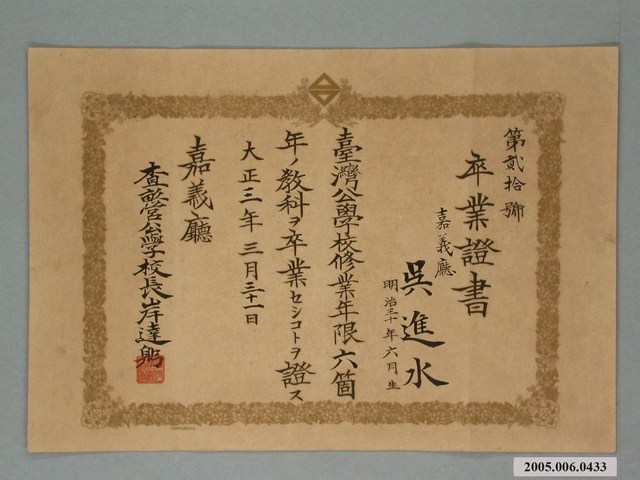 第貳拾號
卒業證書
嘉義廳
吳進水
明治三十年六月生
臺灣公學校修業年限六箇
年ノ教科ヲ卒業セシコトヲ證ス
大正三年三月三十一日
嘉義廳
查畝營公學校長岸達躬
2005.006.0433